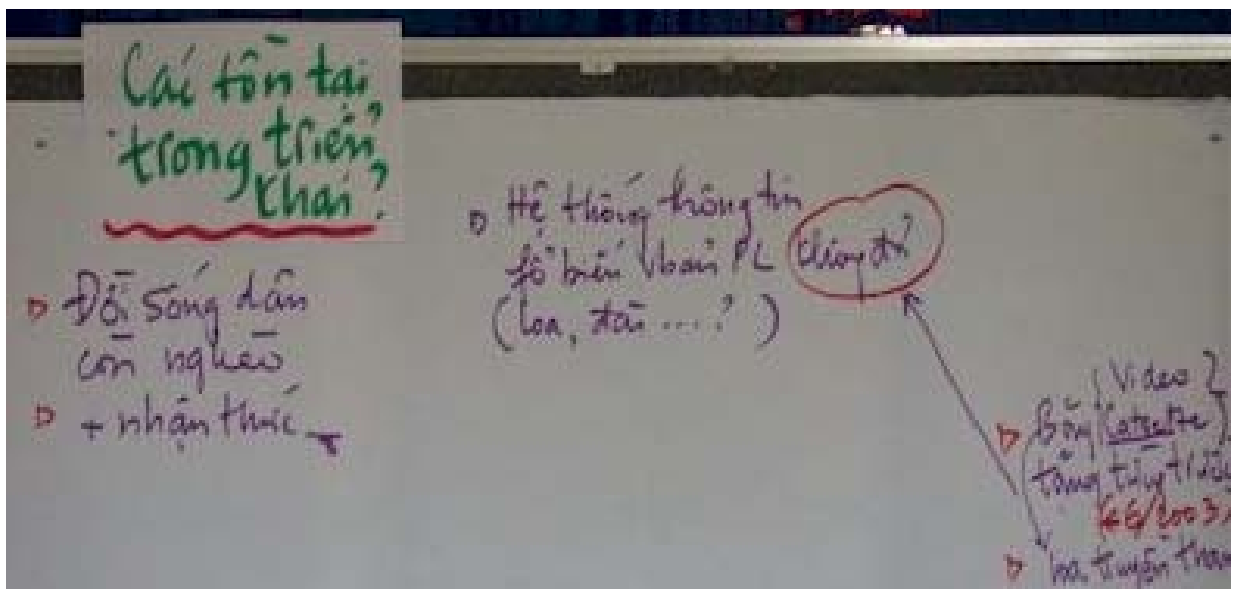 Cái tồn tại
trong triển
khai?
Đời sống dân
còn nghèo
+ nhận thức
Hệ thống thông tin
fổ biến Vbản PL
(loa, đài ...?)
(Video)
Băng (Catsette)
tăng tuyên
(66/2003)
loa truyền than